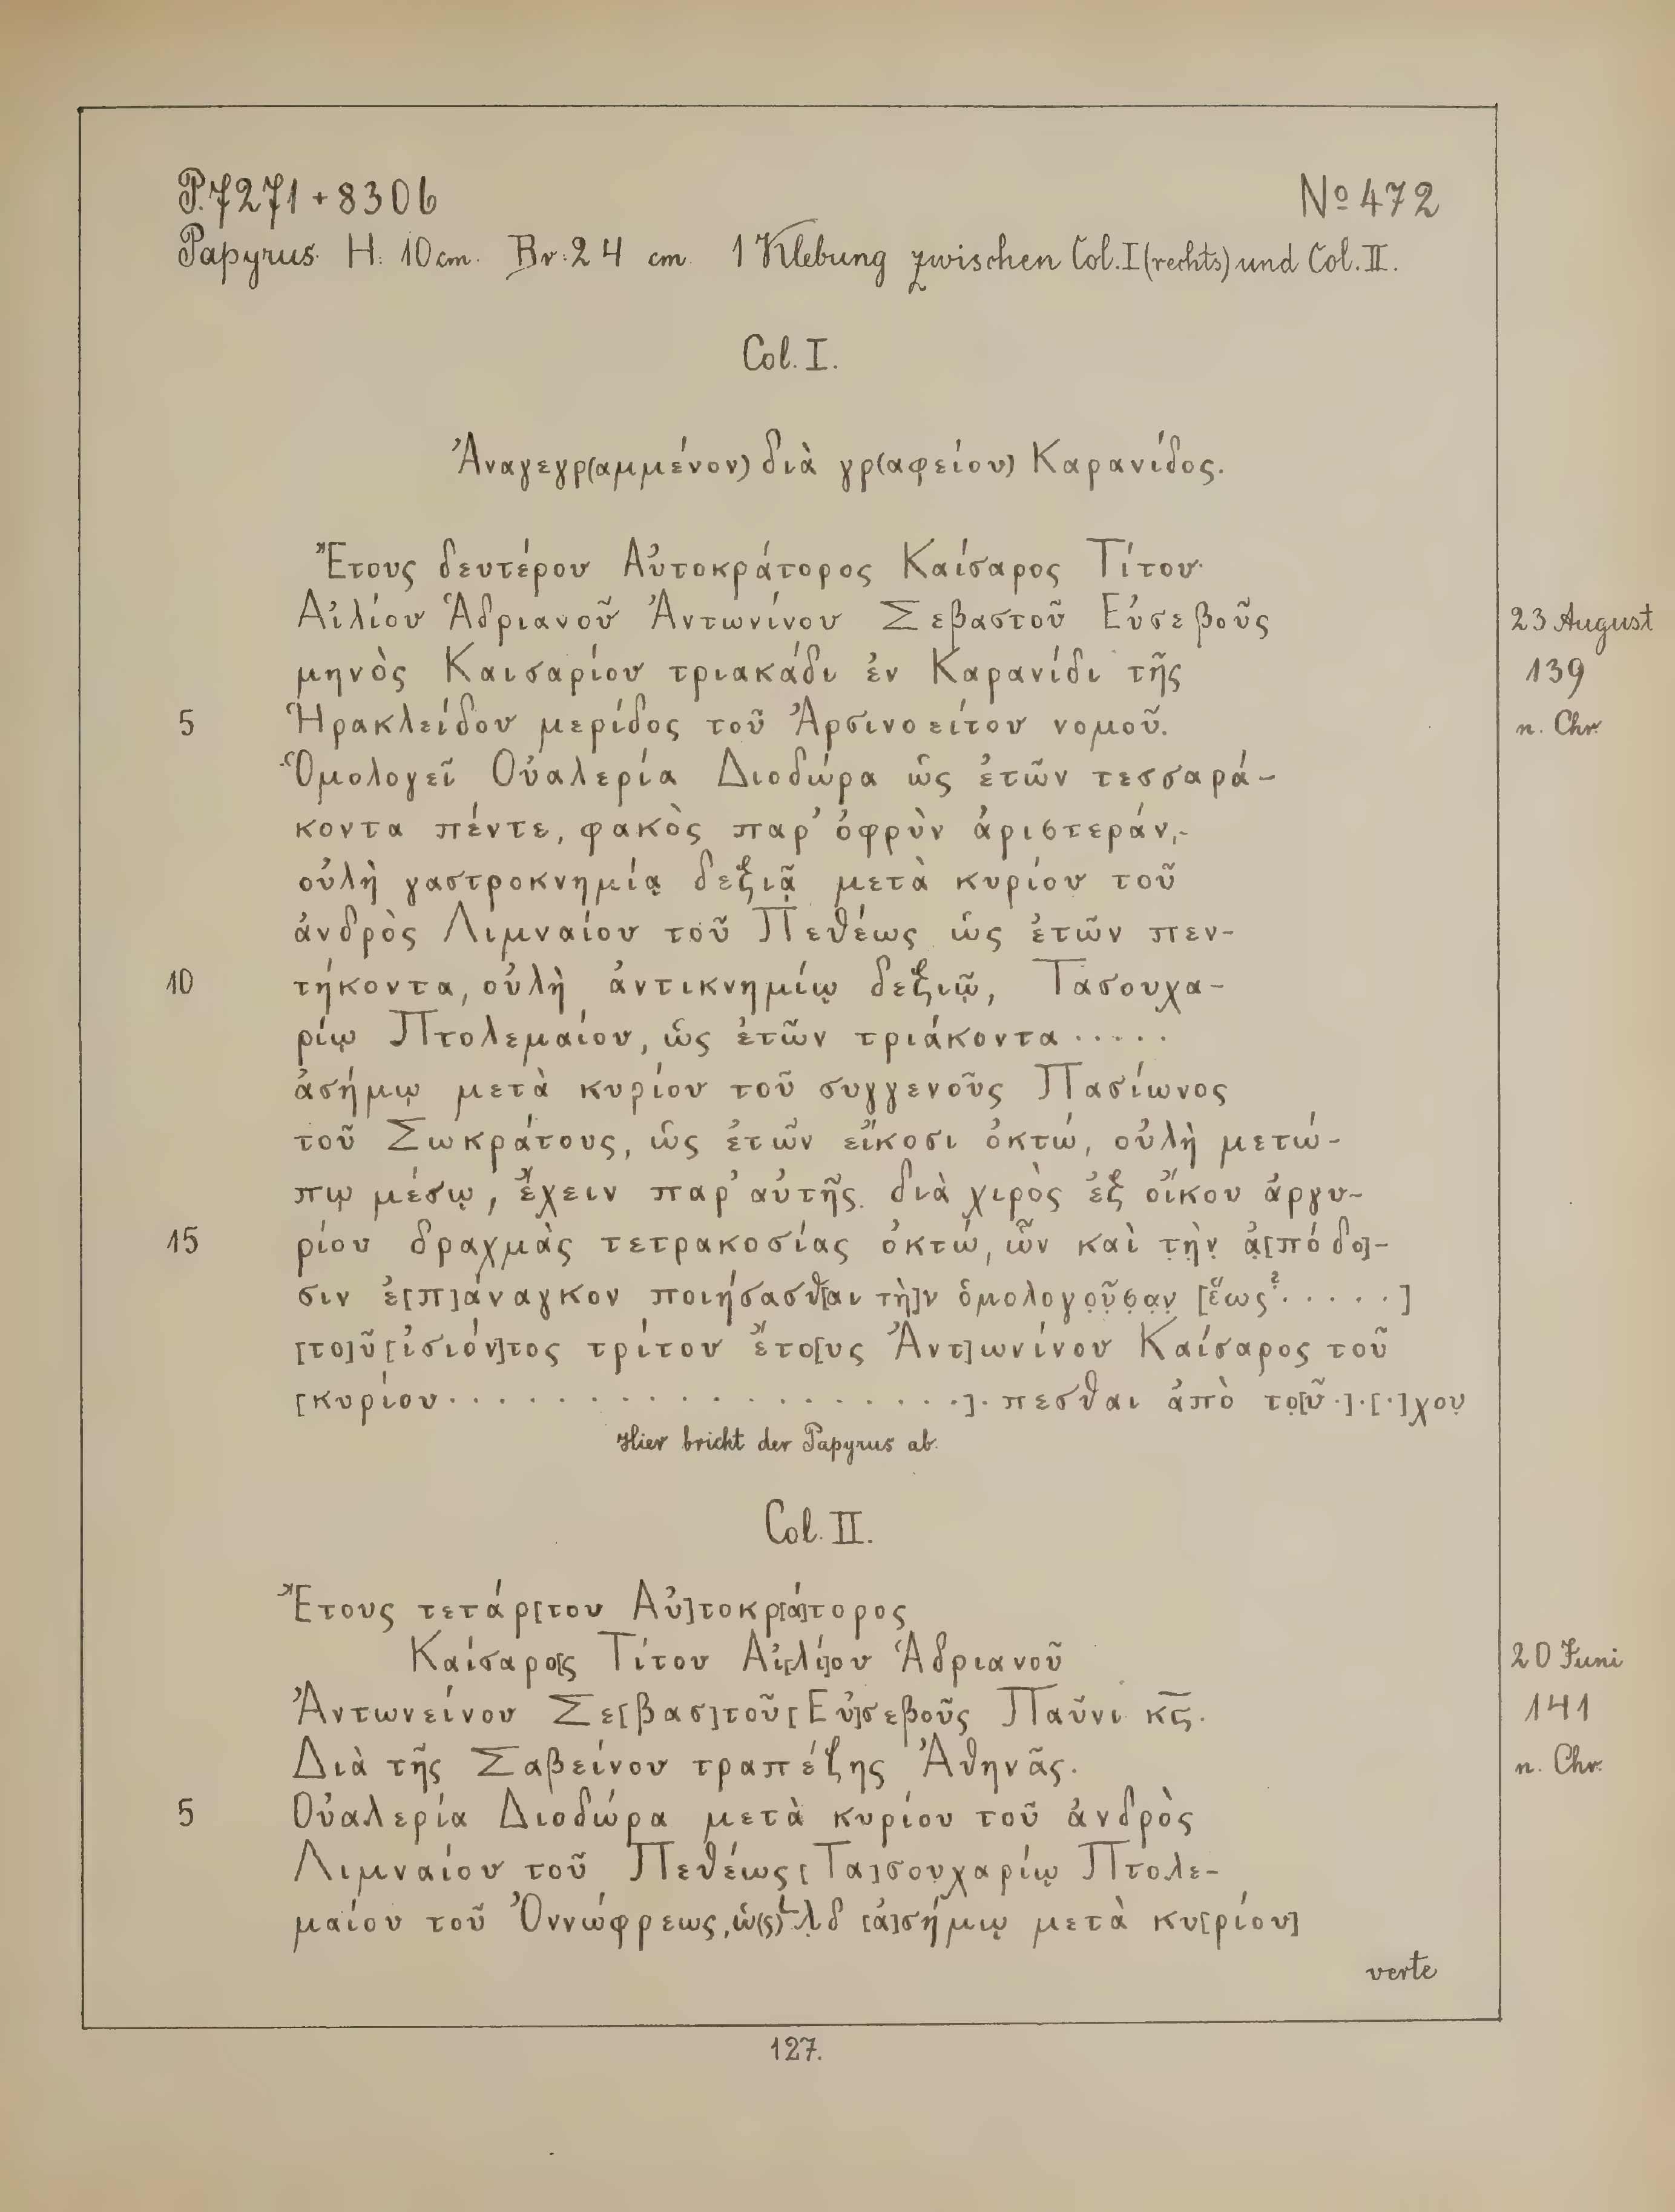 P. 7271 + 8306 № 472
Papyrus. H. 10 cm. Br: 24 cm. 1 Klebung zwischen Col. I (rechts) und Col. II.
Col. I.
Ἀναγεγρ(αμμένον) διὰ γρ(αφείου) Καρανίδος.
Ἔτους δευτέρου Αὐτοκράτορος Καίσαρος Τίτου
Αἰλίου Ἁδριανοῦ Ἀντωνίνου Σεβαστοῦ Εὐσεβοῦς 23 August
μηνὸς Καισαρίου τριακάδι ἐν Καρανίδι τῆς 139
5 Ἡρακλείδου μερίδος τοῦ Ἀρσινοείτου νομοῦ. n. Chr.
Ὁμολογεῖ Οὐαλερία Διοδώρα ὡς ἐτῶν τεσσαρά-
κοντα πέντε, φακὸς παρ' ὀφρὺν ἀριστεράν,
οὐλὴ γαστροκνημίᾳ δεξιᾷ μετὰ κυρίου τοῦ
ἀνδρὸς Λιμναίου τοῦ Πεθέως ὡς ἐτῶν πεν-
10 τήκοντα, οὐλὴ ἀντικνημίῳ δεξιῷ, Τασουχα-
ρίῳ Πτολεμαίου, ὡς ἐτῶν τριάκοντα . . . . .
ἀσήμῳ μετὰ κυρίου τοῦ συγγενοῦς Πασίωνος
τοῦ Σωκράτους, ὡς ἐτῶν εἴκοσι ὀκτώ, οὐλὴ μετώ-
πῳ μέσῳ, ἔχειν παρ' αὐτῆς διὰ χιρὸς ἐξ οἴκου ἀργυ-
15 ρίου δραχμὰς τετρακοσίας ὀκτώ, ὧν καὶ τ̣ὴ̣ν̣ ἀ̣[πόδο]-
σιν ἐ[π]άναγκον ποιήσασθ[αι τὴ]ν ὁμολογο̣ῦ̣σ̣α̣ν̣ [ἕως? . . . . .]
[το]ῦ [ἰσιόν]τος τρίτου ἔτο[υς Ἀντ]ωνίνου Καίσαρος τοῦ
[κυρίου . . . . . . . . . . . . . . . . . . . .] . πεσθαι ἀπὸ το̣[ῦ .] . [.]χου̣
Hier bricht der Papyrus ab.
Col. II.
Ἔτους τετάρ[του Αὐ]τοκρ[ά]τορος
Καίσαρο[ς] Τίτου Αἰ[λί]ου Ἁδριανοῦ 20 Juni
Ἀντωνείνου Σε[βασ]τοῦ [Εὐ]σεβοῦς Παῦνι κϛ̅. 141
Διὰ τῆς Σαβείνου τραπέζης Ἀθηνᾶς. n. Chr.
5 Οὐαλερία Διοδώρα μετὰ κυρίου τοῦ ἀνδρὸς
Λιμναίου τοῦ Πεθέως [Τα]σουχαρίῳ Πτολε-
μαίου τοῦ Ὀννώφρεως, ὡ(ς) L λ̣δ [ἀ]σήμῳ μετὰ κυ[ρίου]
verte
127.